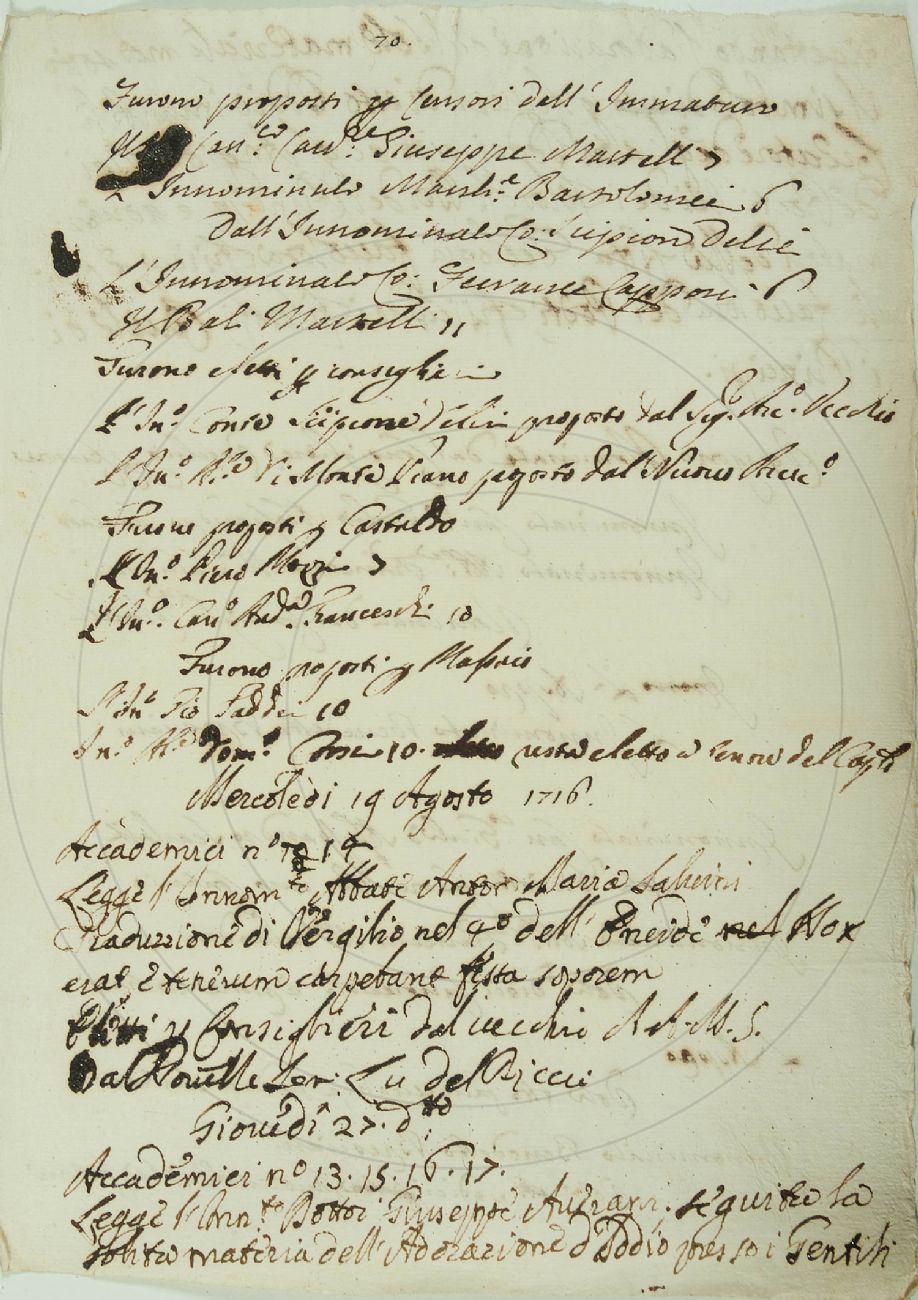 70.
Furono proposti p Censori dell' Immaturo
Il Can.co Cav.re Giuseppe Martelli 7
L'Innominato March.e Bartolomei 6
Dall' Innominato Co: Scipion Delci
L'Innominato Co: Ferrante Capponi 6
Il Bali Martelli 11
Furono eletti p consiglieri
L'In.o Conte Scipione Delci proposto dal Sig. Arc.o Vecchio
L'In.o Di Monte Piano pposto dal Nuovo Arcic.o
Furono pposti p Castaldo
L'In.o Piero Mozzi 7
L'In.o And.a Franceschi 10
Furono pposti p Massaio
L'In.o Gio Taddei 10
In.o dom.o Corsi 10. resta eletto a tenore del Cap.lo
Mercoledì 19 Agosto 1716.
Accademici n.o 14
Legge l'Innom.to Abbate Anton Maria Salvini
Traduzzione di Vergilio nel 4.o dell' Eneide nel Nox
erat, et tenerum carpebant fessa soporem
Eletti p Consiglieri dal vecchio A. A. M. S.
Dal Novello Ser: Lu del Ricci
Giovedì 27. d.tto
Accademici n.o 13. 15. 16. 17.
Legge l'Inn.to Dottor Giuseppe Averani, seguita la
solita materia dell'Adorazione d'Iddio presso i Gentili